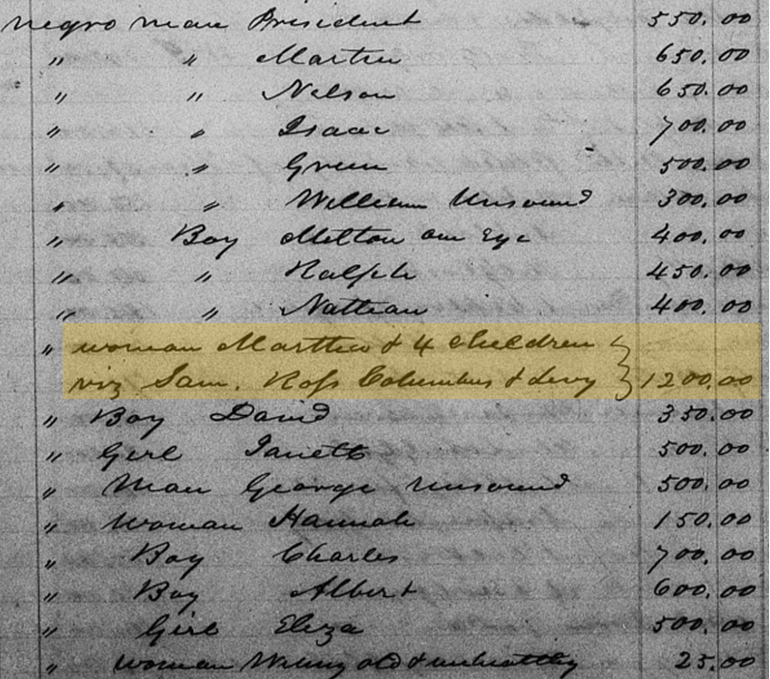 negro man President 550.00
" " Martin 650.00
" " Nelson 650.00
" " Isaac 700.00
" " Green 500.00
" " William Unsound 300.00
" Boy Milton one Eye 400.00
" " Ralph 450.00
" " Nathan 400.00
" woman Martha & 4 children
viz Sam. Ross Columbus & Levy } 1200.00
" Boy David 350.00
" Girl Janett 500.00
" Man George Unsound 500.00
" Woman Hannah 150.00
" Boy Charles 700.00
" Boy Albert 600.00
" Girl Eliza 500.00
" woman old & unhealthy 25.00